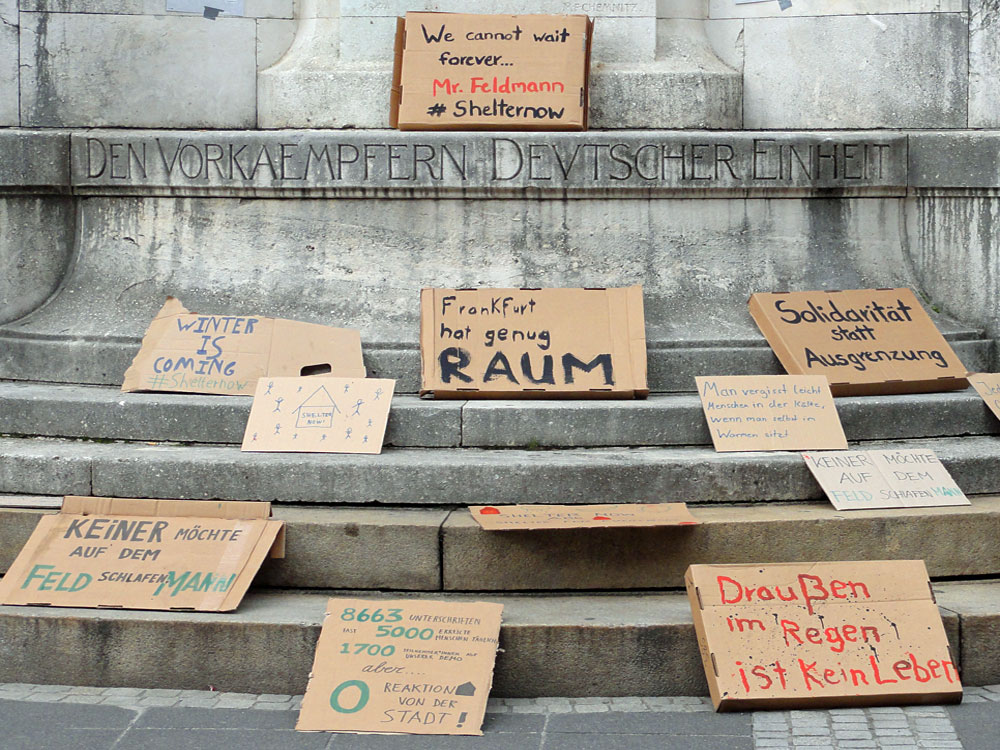 RECHEMNITZ
We cannot wait
forever...
Mr. Feldmann
# Shelternow
DEN VORKAEMPFERN DEVTSCHER EINHEIT
WINTER
IS
COMING
#Shelternow
FRankfuRt
hat genug
RAUM
Solidarität
statt
Ausgrenzung
SHELTER
NOW!
Man vergisst leicht
Menschen in der Kälte,
wenn man selbst im
Warmen sitzt
KEINER MÖCHTE
AUF DEM
FELD SCHLAFEN MANN
KEINER MÖCHTE
AUF DEM
FELD SCHLAFEN MANN
SHELTER NOW
8663 UNTERSCHRIFTEN
FAST 5000 ERREICTE MENSCHEN TÄGLICH
1700 TEILNEHMER*INNEN AUF UNSERER DEMO
aber....
0 REAKTION
VON DER
STADT!
Draußen
im Regen
ist Kein Leben